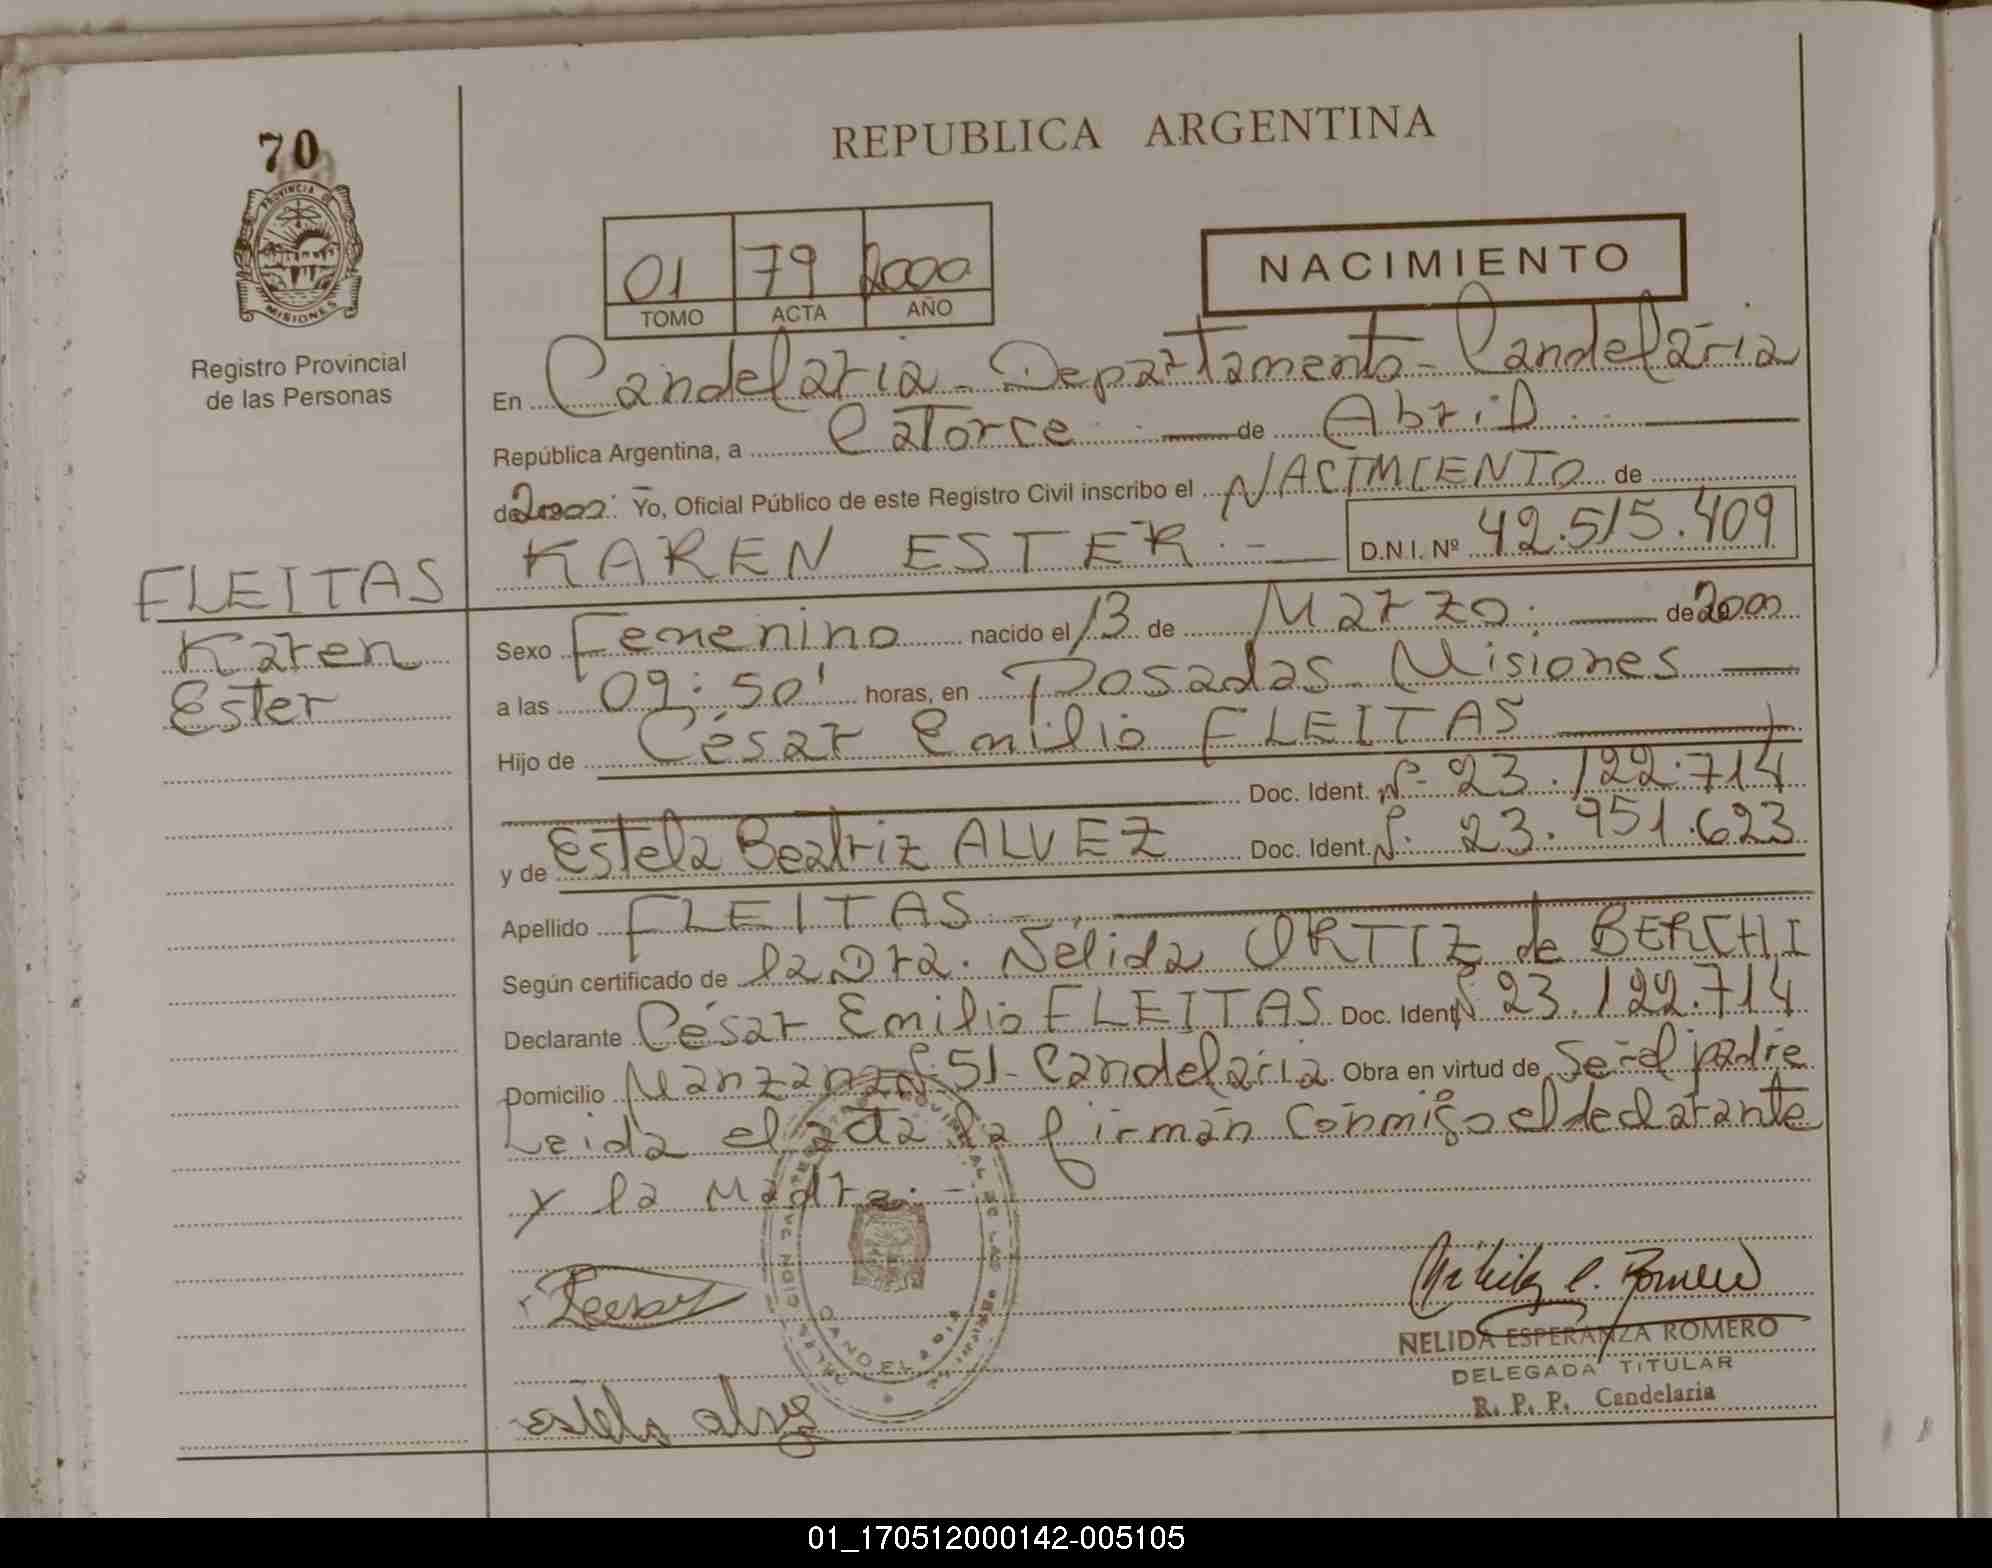 70
PROVINCIA DE
MISIONES
Registro Provincial
de las Personas
REPUBLICA ARGENTINA
01 79 2000
TOMO ACTA AÑO
NACIMIENTO
En Candelaria - Departamento - Candelaria
República Argentina, a Catorce de Abril
de 2000 Yo, Oficial Público de este Registro Civil inscribo el NACIMIENTO de
KAREN ESTER D.N.I. Nº 42.515.409
FLEITAS
Karen
Ester
Sexo Femenino nacido el 13 de Marzo de 2000
a las 09:50' horas, en Posadas Misiones
Hijo de César Emilio FLEITAS
Doc. Ident. Nº 23.122.714
y de Estela Beatriz ALVEZ Doc. Ident. Nº 23.951.623
Apellido FLEITAS
Según certificado de la Dra. Nélida ORTIZ de BERCHI
Declarante César Emilio FLEITAS Doc. Ident. Nº 23.122.714
Domicilio Manzana Nº 51 - Candelaria Obra en virtud de Ser el padre
Leida el acta la firman conmigo el declarante
y la Madre. -
Estela Alvez
NELIDA ESPERANZA ROMERO
DELEGADA TITULAR
R. P. P. Candelaria
01_170512000142-005105